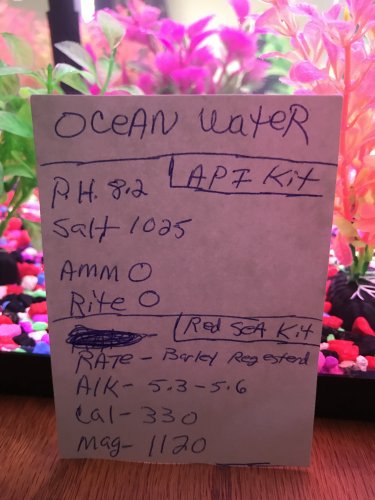 OCEAN WATER
API Kit
P.H. 8.2
Salt 1025
AMM 0
Rite 0
Red SeA Kit
RATe - Barley Regesterd
A/K - 5.3 - 5.6
Cal - 330
Mag - 1120